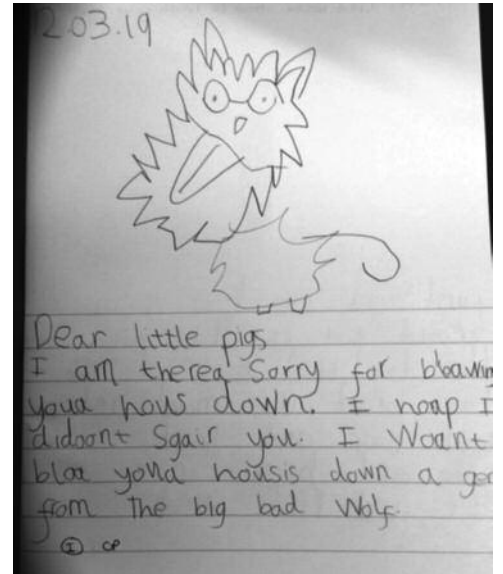 2.03.19
Dear little pigs
I am therea Sorry for bloawing
youa hous down. I hoap I
didoant Sgair you. I Woant
bloa youa housis down a gen
from The big bad Wolf.
I CP